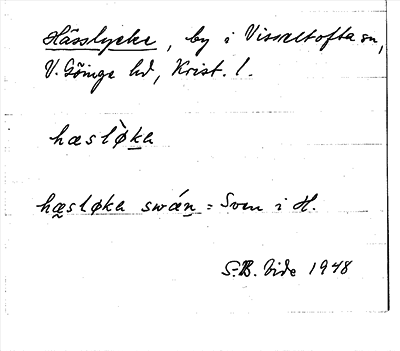 Hässlycke, by i Visseltofta sn,
V. Göinge hd, Krist. l.
hæslø̀ka
hæsløka swán = Sven i H.
S.-B. Vide 1948